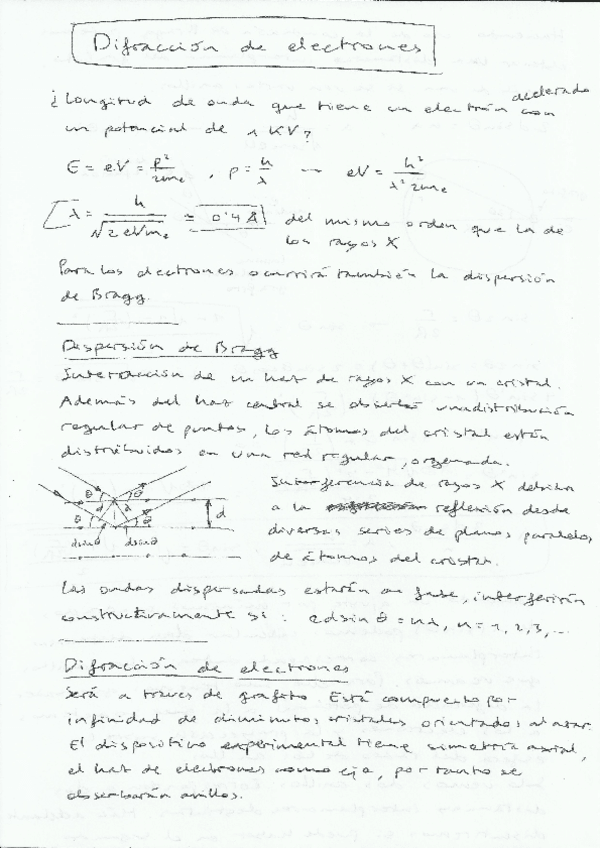 Difracción de electrones
acelerado
¿Longitud de onda que tiene un electrón con
un potencial de 1 KV?
E = eV = p²/2me , p = h/λ → eV = h²/λ²2me
λ = h/√2eVme = 0'4 Å del mismo orden que la de
los rayos X
Para los electrones ocurrirá también la dispersión
de Bragg.
Dispersión de Bragg
Interacción de un haz de rayos X con un cristal.
Además del haz central se observó una distribución
regular de puntos, los átomos del cristal están
distribuidos en una red regular, organizada.
Interferencia de rayos X debida
a la reflexión desde
diversas series de planos paralelos
de átomos del cristal.
θ θ
d d θ θ d
dsinθ dsinθ
Las ondas dispersadas estarán en fase, interferirán
constructivamente si : 2dsinθ = nλ, n = 1, 2, 3, ...
Difracción de electrones
Será a traves de grafito. Está compuesto por
infinidad de diminutos cristales orientados al azar.
El dispositivo experimental tiene simetría axial,
el haz de electrones como eje, por tanto se
observarán anillos.